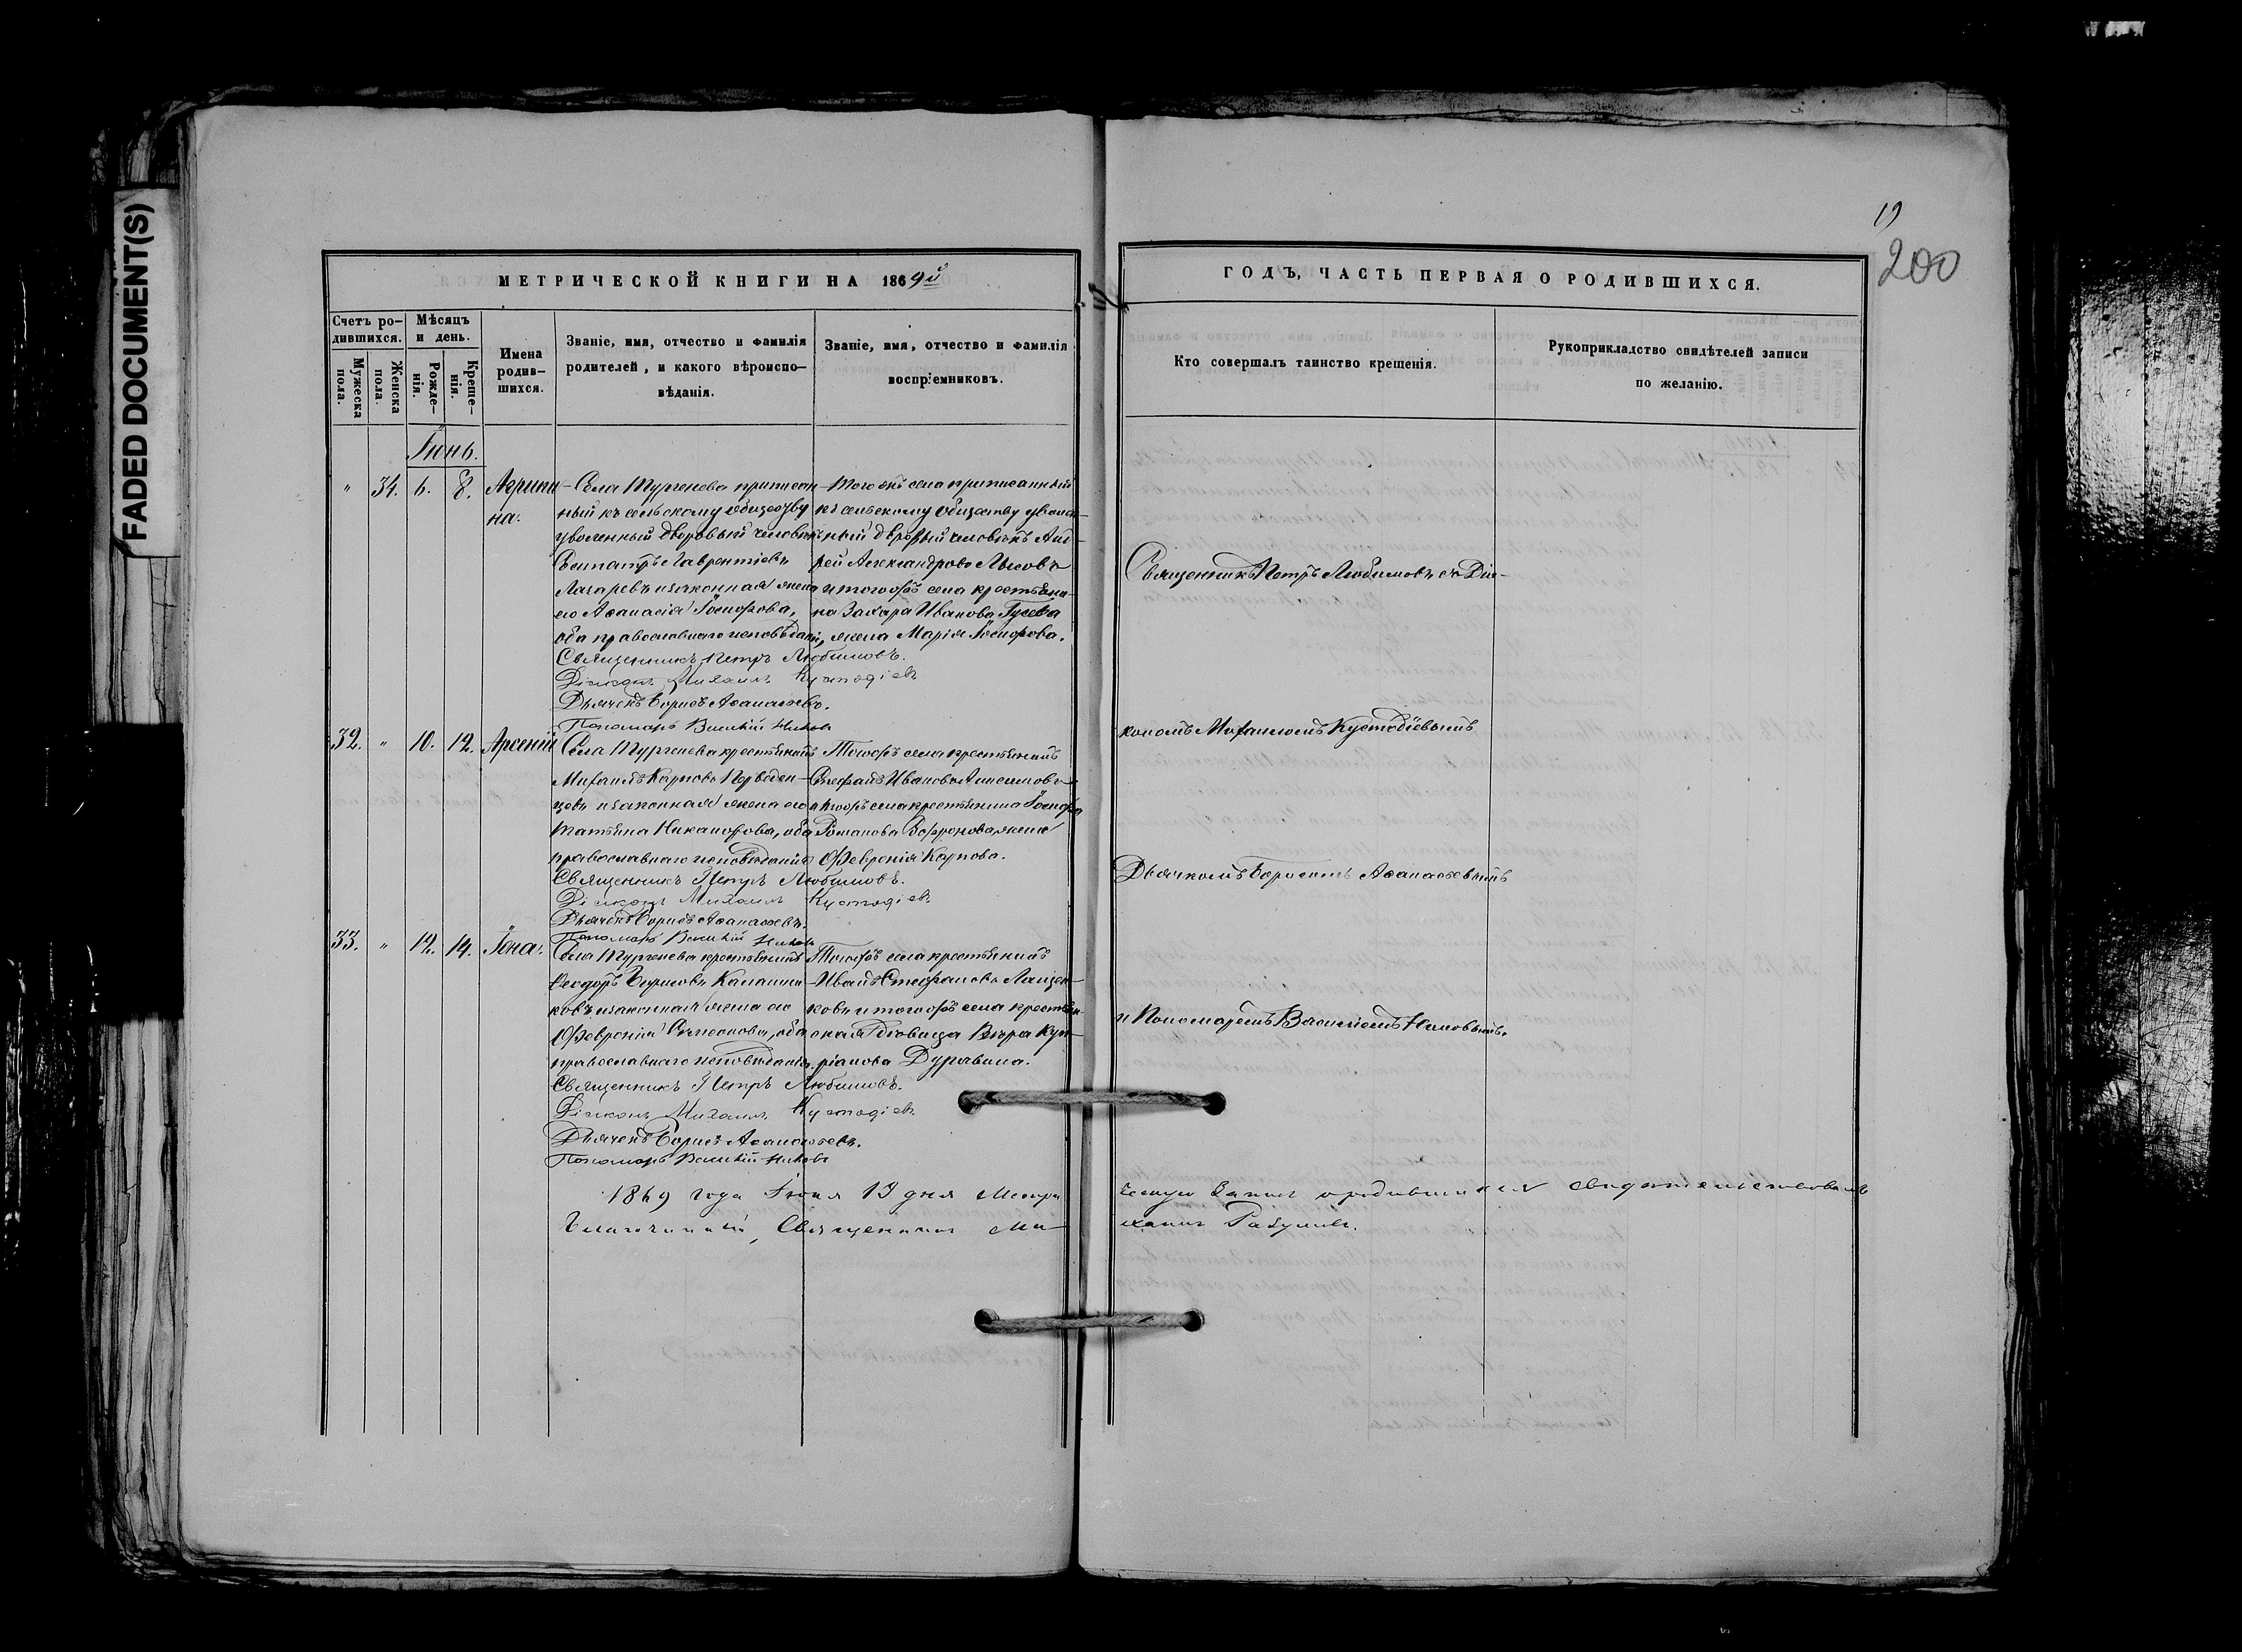 FADED DOCUMENT(S)
19
200
МЕТРИЧЕСКОЙ КНИГИ НА 1869й
ГОДЪ, ЧАСТЬ ПЕРВАЯ О РОДИВШИХСЯ.
Счетъ ро-
дившихся.
Мужеска
пола.
Женска
пола.
Мѣсяцъ
и день.
Рожде-
нія.
Креще-
нія.
Имена
родив-
шихся.
Званіе, имя, отчество и фамилія
родителей, и какого вѣроиспо-
вѣданія.
Званіе, имя, отчество и фамилія
воспріемниковъ.
Кто совершалъ таинство крещенія.
Рукоприкладство свидѣтелей записи
по желанію.
Іюнь.
" 34. 6. 8. Агрипи-
на.
Села Тургенева приписан-
ный къ сельскому обществу
уволенный дворовый человѣкъ
Лаврентіевъ
Лазаревъ и законная жена
его Аѳанасія Іосифова,
оба православнаго исповѣданія,
Того жъ села приписанный
къ сельскому обществу уволен-
ный дворовый человѣкъ Анд-
рей Александровъ Лысовъ
и тогожъ села крестьяни-
на Захара Иванова Гусева
жена Марія Іосифова.
Священникъ Петръ Любимовъ.
Діаконъ Михаилъ Кустодіевъ
Дьячекъ Борисъ Аѳанасьевъ.
Пономарь Василій Никовъ
32. " 10. 12. Арсеній
Села Тургенева крестьянинъ
Михаилъ Карповъ
и законная жена его
Татьяна Никанорова, оба
православнаго исповѣданія
Тогожъ села крестьянинъ
Стефанъ Ивановъ Анисимовъ
и тогожъ села крестьянина Іосифа
Романова Софронова жена
Февронія Карпова.
Священникъ Петръ Любимовъ.
Діаконъ Михаилъ Кустодіевъ
Дьячекъ Борисъ Аѳанасьевъ.
Пономарь Василій Никовъ
33. " 12. 14. Іона.
Села Тургенева крестьянинъ
Ѳеодоръ Борисовъ Калашни-
ковъ и законная жена его
Февронія оба
православнаго исповѣданія.
Тогожъ села крестьянинъ
Иванъ Стефановъ
ковъ и тогожъ села крестьян-
ская дѣвица Вѣра Куп-
ріанова
Священникъ Петръ Любимовъ.
Діаконъ Михаилъ Кустодіевъ
Дьячекъ Борисъ Аѳанасьевъ.
Пономарь Василій Никовъ
Священникъ Петръ Любимовъ съ Діа-
кономъ Михаиломъ Кустодіевымъ
Дьячкомъ Борисомъ Аѳанасьевымъ
и Пономаремъ Василіемъ Никовымъ.
1869 года Іюля 13 дня Метри
ческую запись о родившихся свидѣтельствовалъ
Благочинный, Священникъ Ми-
хаилъ